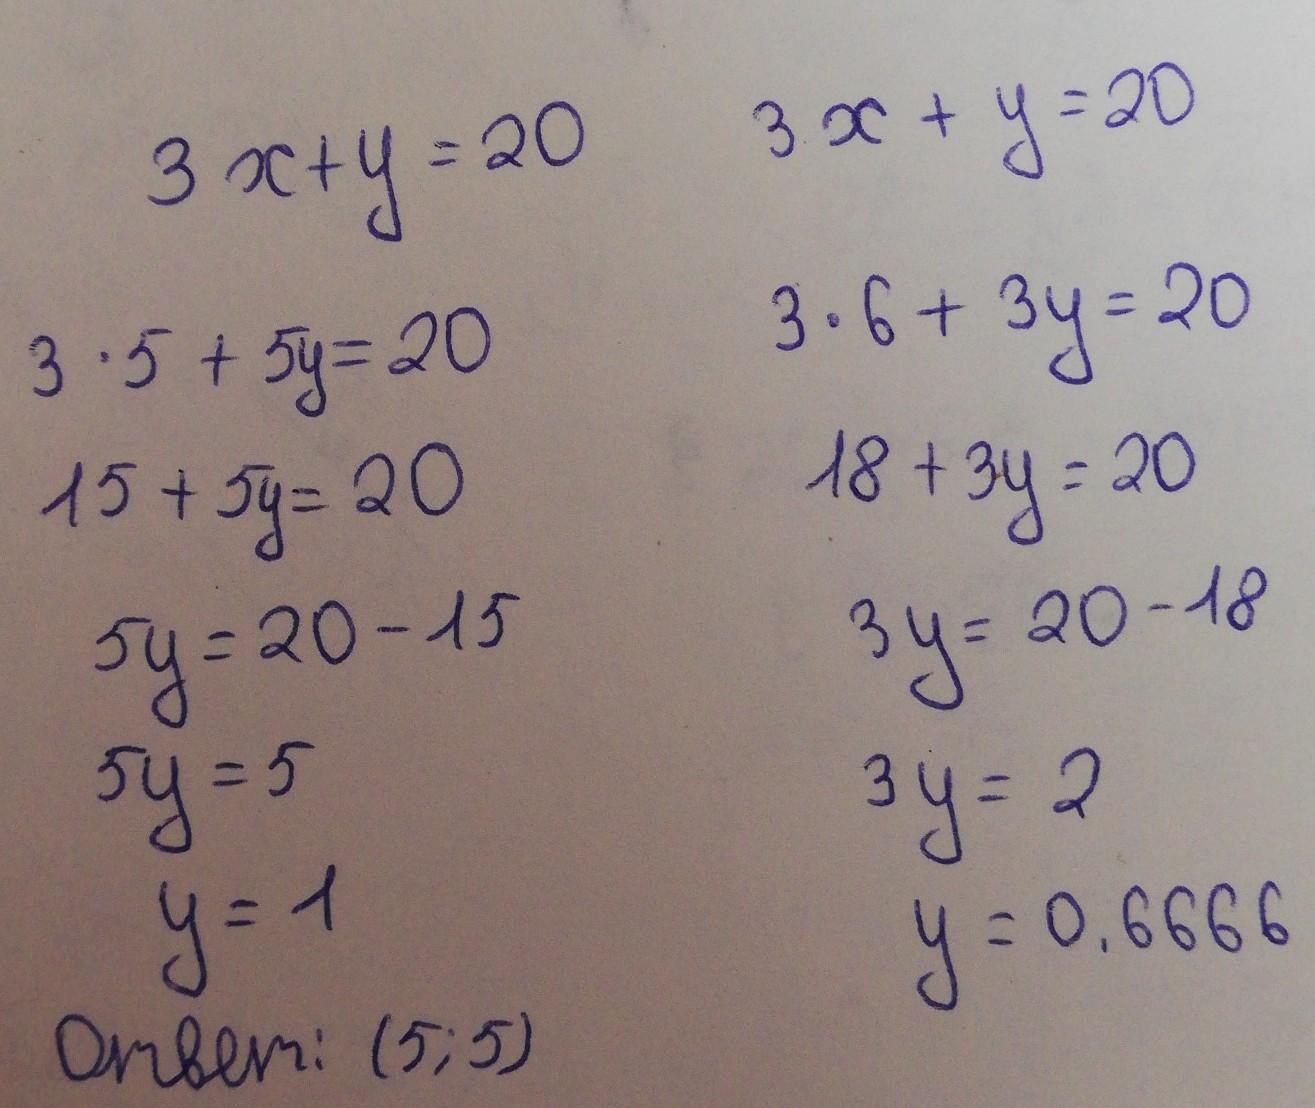 3x+y=20
3·5+5y=20
15+5y=20
5y=20-15
5y=5
y=1
Ответ: (5;5)
3x+y=20
3·6+3y=20
18+3y=20
3y=20-18
3y=2
y=0.6666